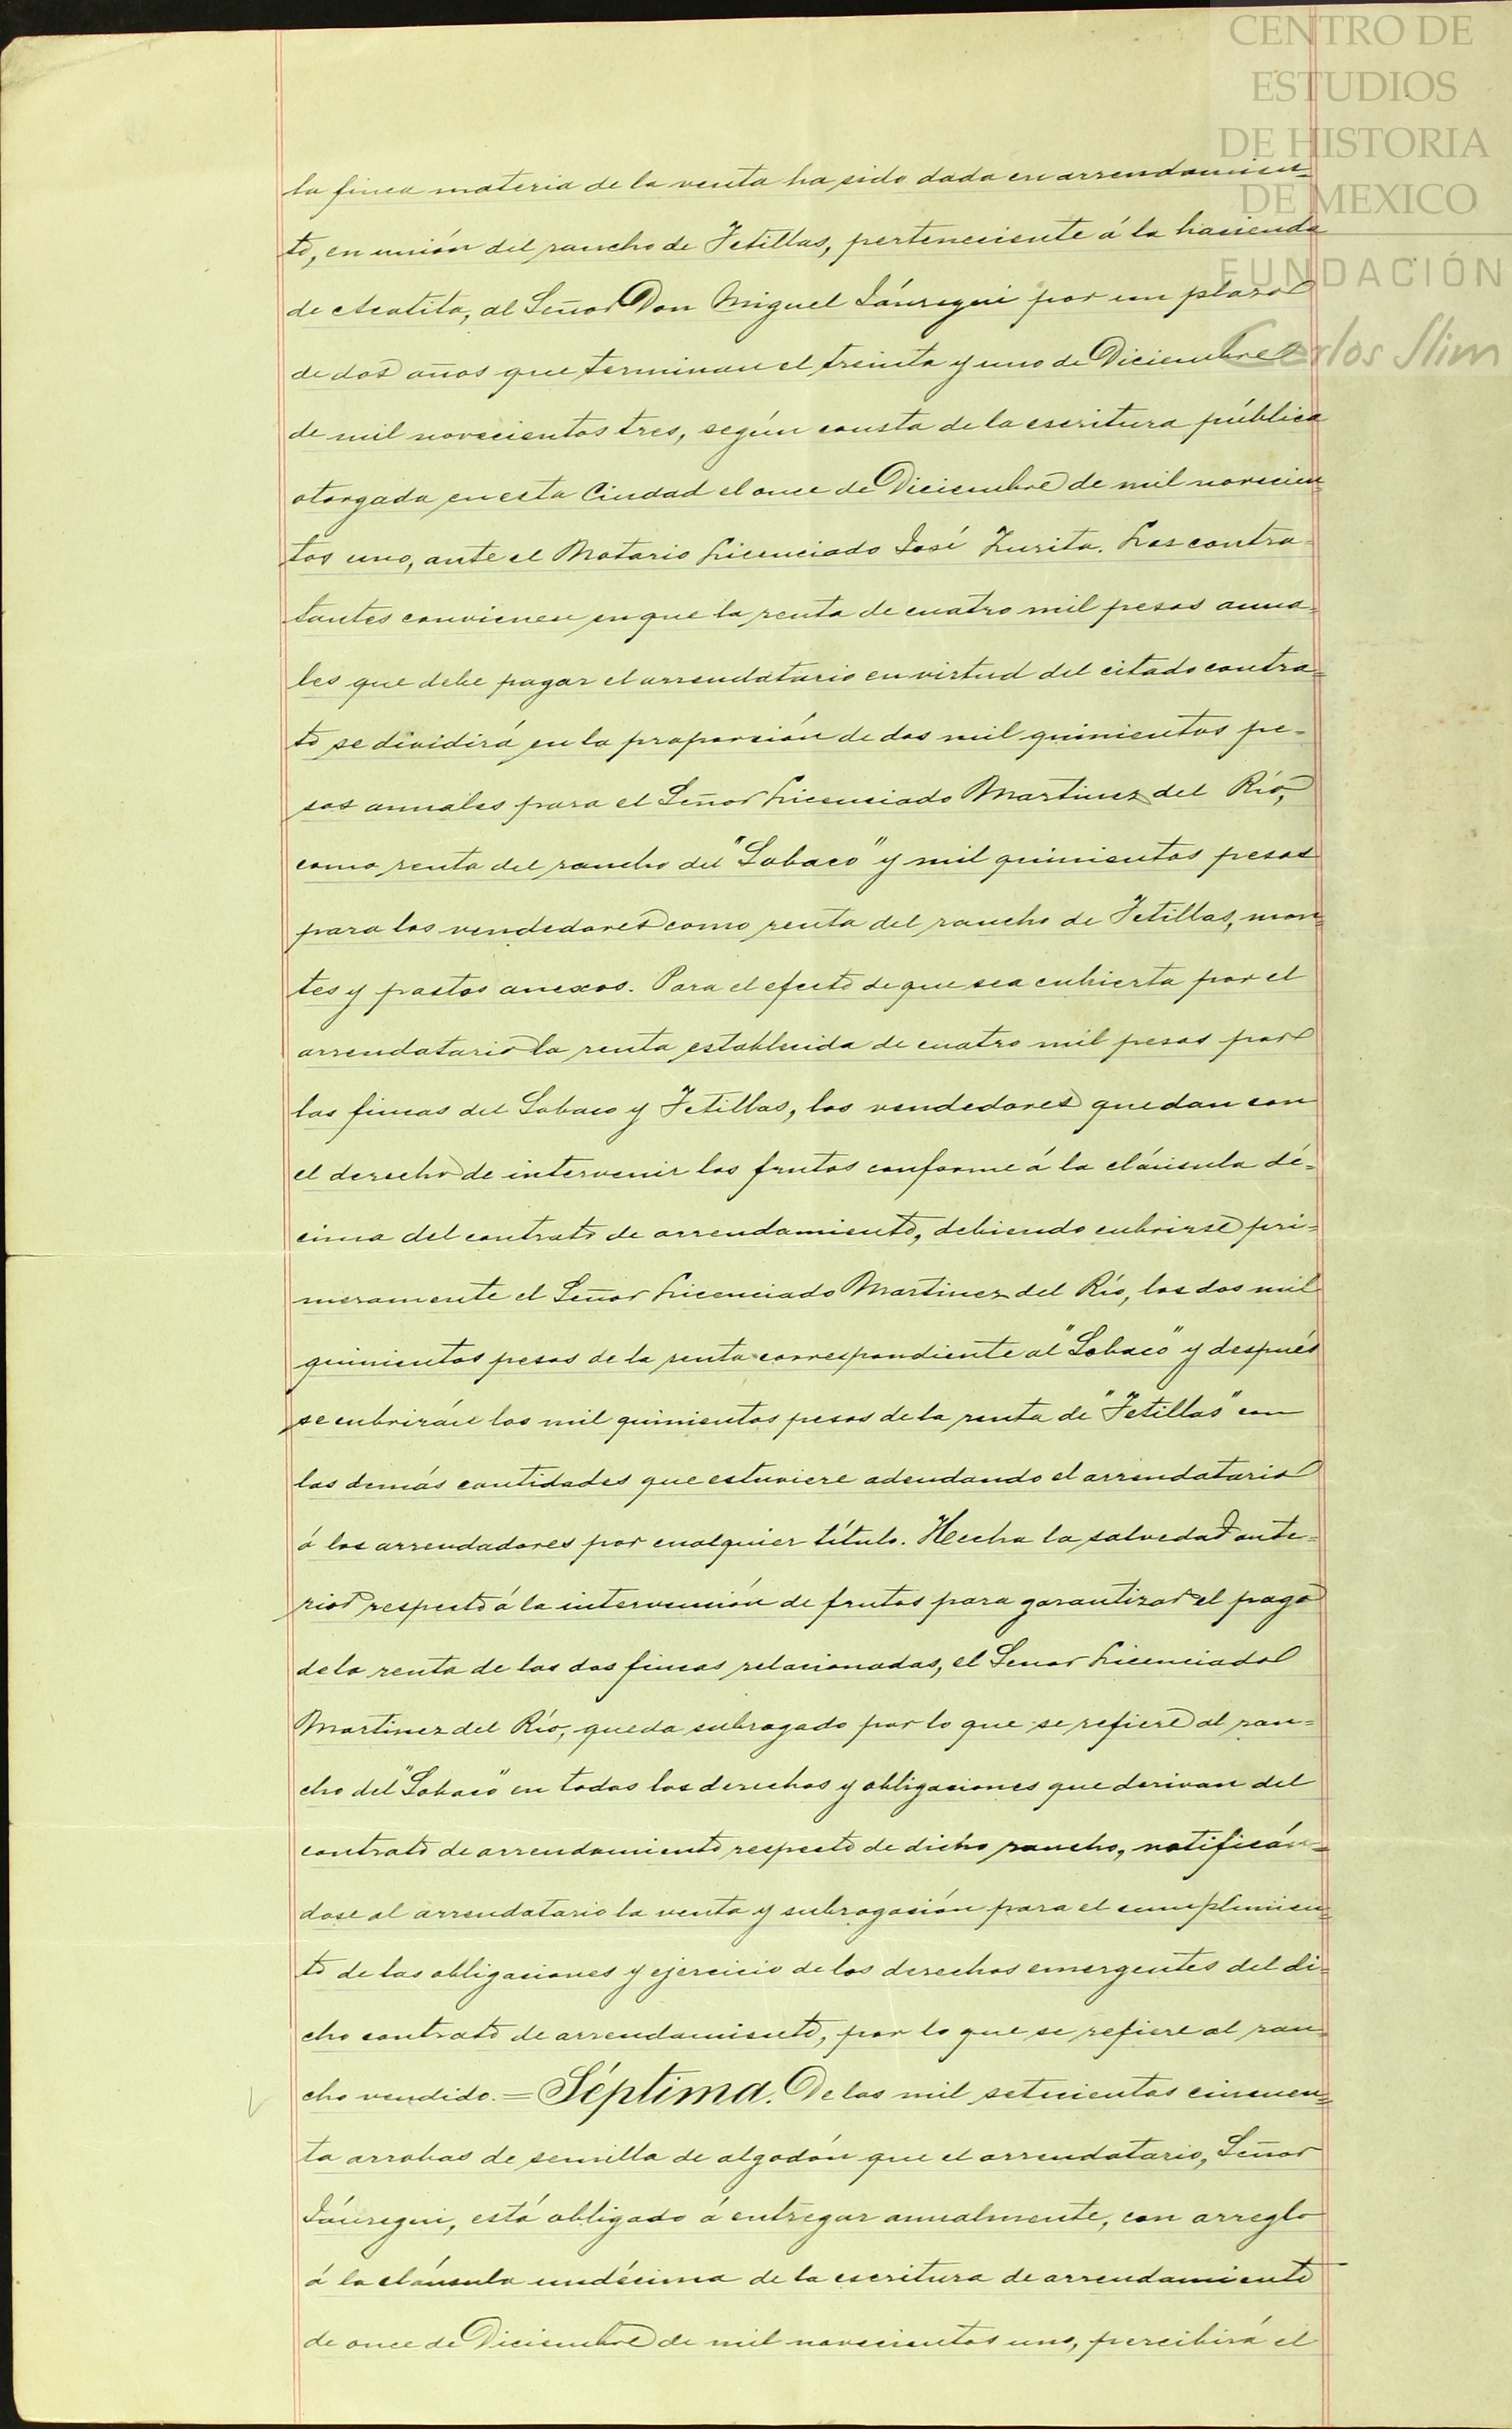 CENTRO DE
ESTUDIOS
DE HISTORIA
DE MEXICO
FUNDACIÓN
Carlos Slim
la finca materia de la venta ha sido dada en arrendamien-
to, en unión del rancho de Tetillas, perteneciente á la hacienda
de Acatita, al Señor Don Miguel Jáuregui por un plazo
de dos años que terminan el treinta y uno de Diciembre
de mil novecientos tres, según consta de la escritura pública
otorgada en esta Ciudad el once de Diciembre de mil novecien-
tos uno, ante el Notario Licenciado José Zurita. Los contra-
tantes convienen en que la renta de cuatro mil pesos anua-
les que debe pagar el arrendatario en virtud del citado contra-
to se dividirá en la proporción de dos mil quinientos pe-
sos anuales para el Señor Licenciado Martinez del Río,
como renta del rancho del "Lobaco" y mil quinientos pesos
para los vendedores como renta del rancho de Tetillas, mon-
tes y pastos anexos. Para el efecto de que sea cubierta por el
arrendatario la renta establecida de cuatro mil pesos por
las fincas del Lobaco y Tetillas, los vendedores quedan con
el derecho de intervenir los frutos conforme á la cláusula dé-
cima del contrato de arrendamiento, debiendo cubrirse pri-
meramente el Señor Licenciado Martinez del Río, los dos mil
quinientos pesos de la renta correspondiente al "Lobaco" y después
se cubrirán los mil quinientos pesos de la renta de "Tetillas" con
las demás cantidades que estuviere adeudando el arrendatario
á los arrendadores por cualquier título. Hecha la salvedad ante-
rior respecto á la intervención de frutos para garantizar el pago
de la renta de las dos fincas relacionadas, el Senor Licenciado
Martinez del Río, queda subrogado por lo que se refiere al ran-
cho del "Lobaco" en todos los derechos y obligaciones que derivan del
contrato de arrendamiento respecto de dicho rancho, notificán-
dose al arrendatario la venta y subrogación para el cumplimien-
to de las obligaciones y ejercicio de los derechos emergentes del di-
cho contrato de arrendamiento, por lo que se refiere al ran-
cho vendido. = Séptima. De las mil setecientas cincuen-
ta arrobas de semilla de algodón que el arrendatario, Señor
Jáuregui, está obligado á entregar anualmente, con arreglo
á la cláusula undécima de la escritura de arrendamiento
de once de Diciembre de mil novecientos uno, percibirá el